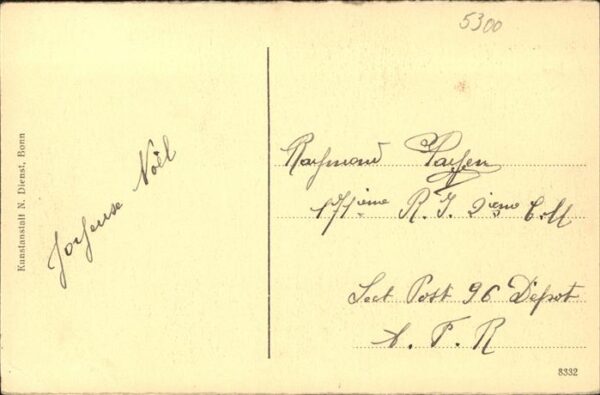 5300
Kunstanstalt N. Dienst, Bonn
Joyeuse Noël
Raymond Payen
171ième R. I. 2ième C.M
Sect Post 96 Depot
A. F. R
8332